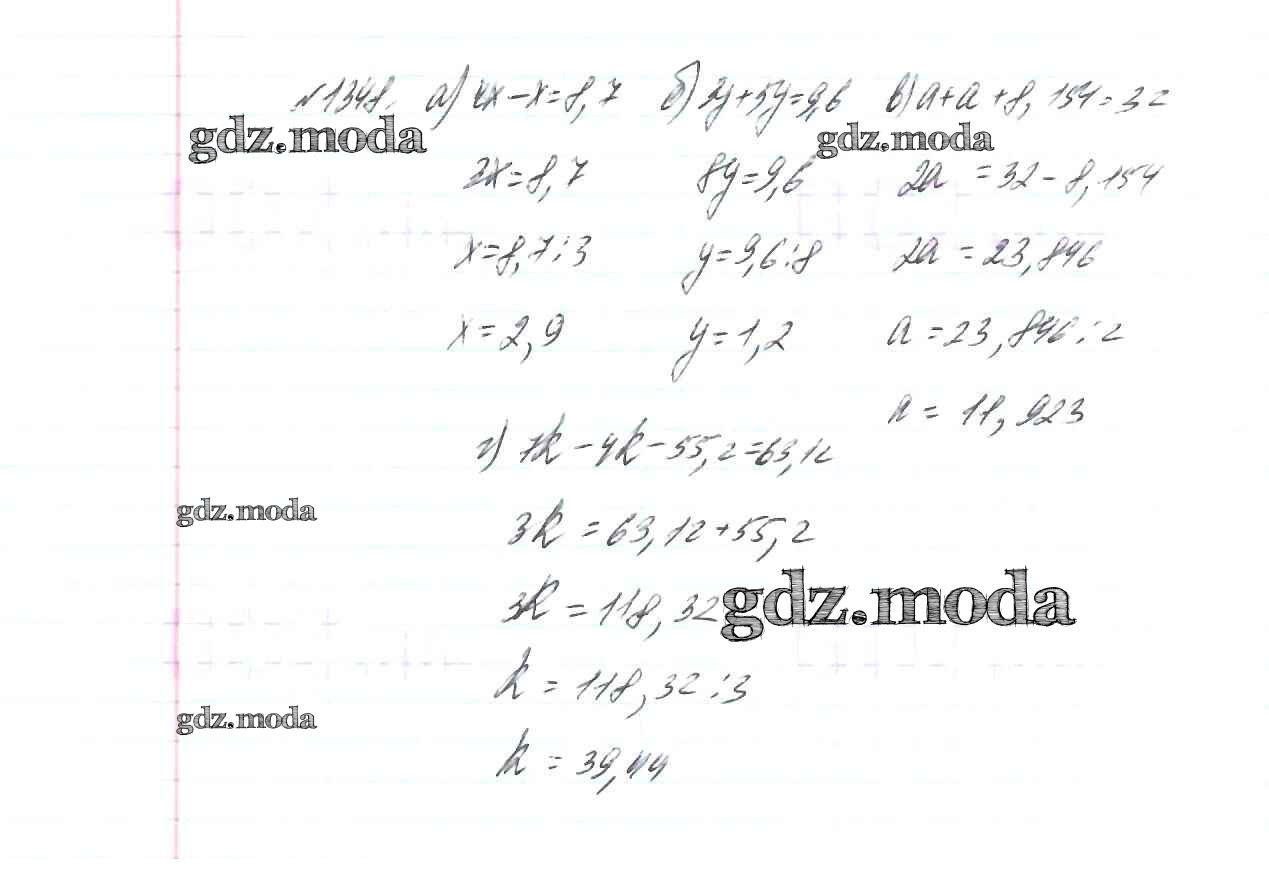 №1348. а) 4x-x=8,7 б) 3y+5y=9,6 в) a+a+8,154=32
gdz.moda gdz.moda
3x=8,7 8y=9,6 2a =32-8,154
x=8,7:3 y=9,6:8 2a =23,846
x=2,9 y=1,2 a =23,846:2
a = 11,923
г) 7k-4k-55,2=63,12
gdz.moda
3k =63,12+55,2
3k =118,32
gdz.moda
k =118,32:3
gdz.moda
k = 39,44